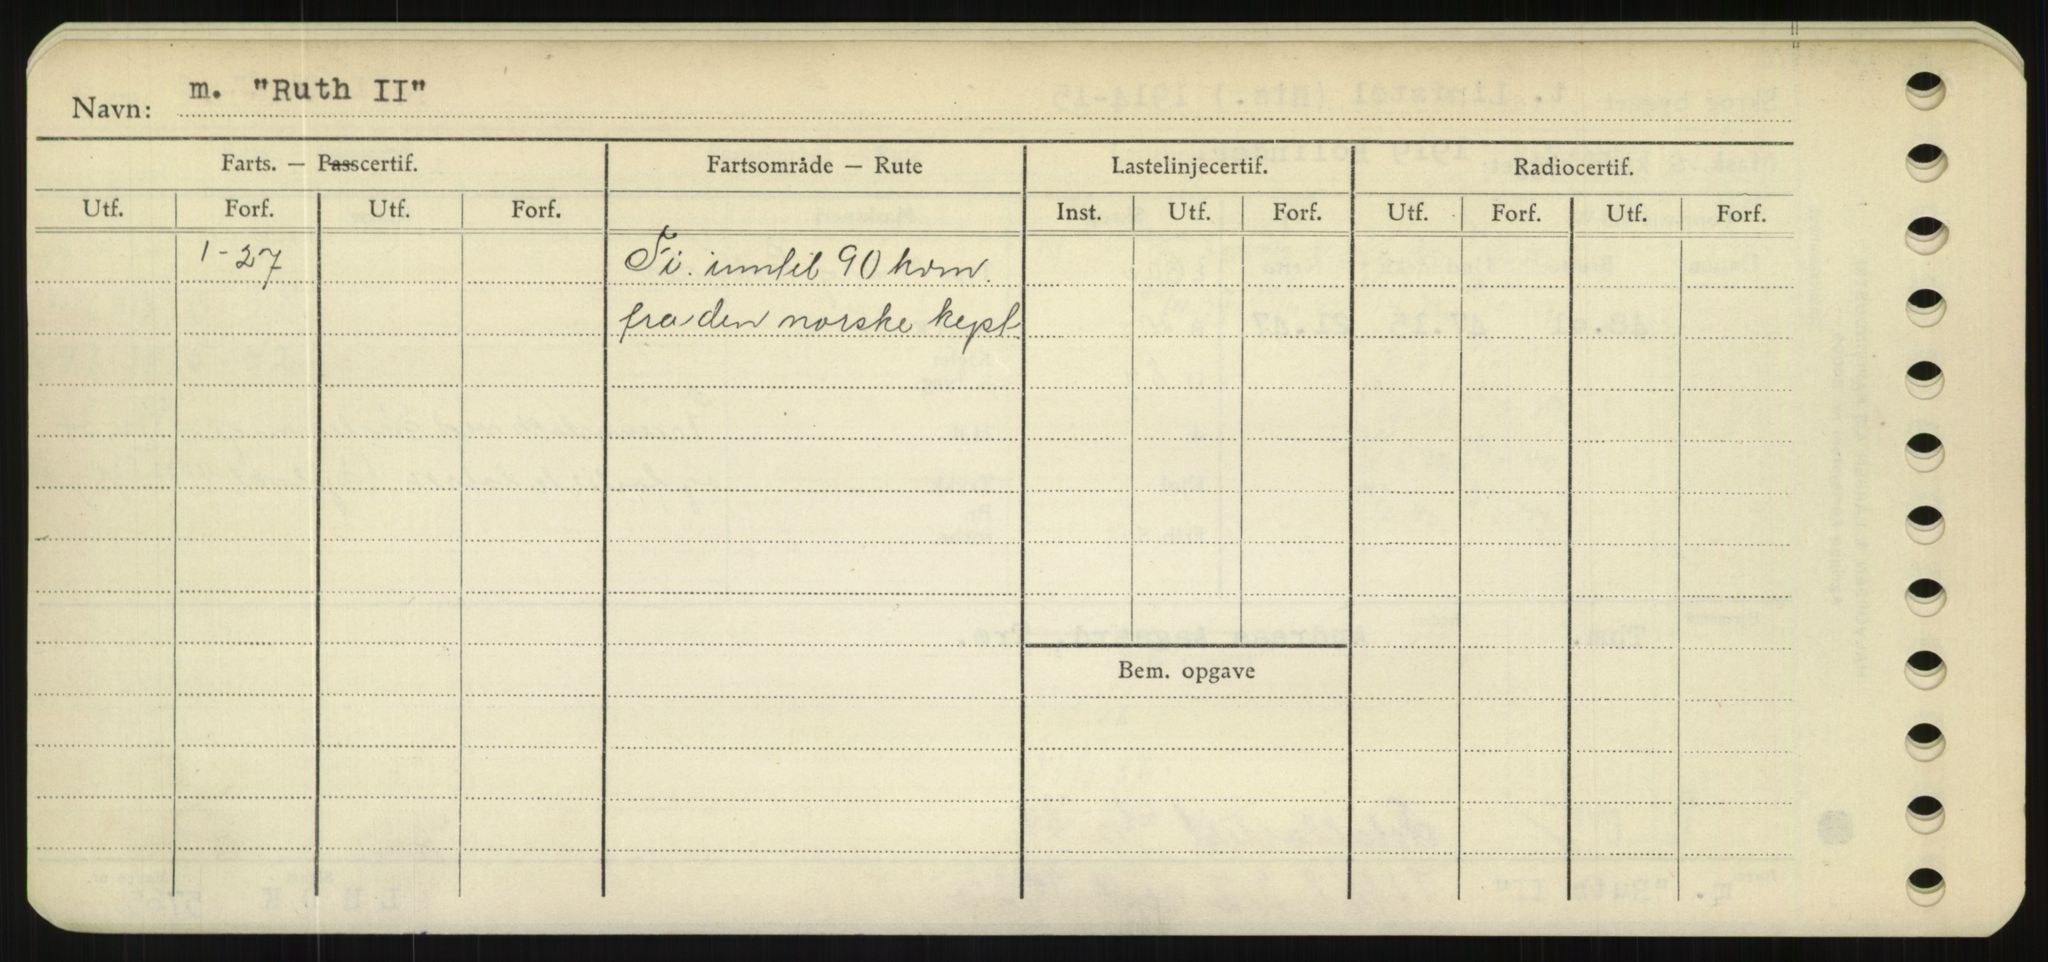 Navn: m. "Ruth II"
Farts. — Passcertif. Fartsområde — Rute Lastelinjecertif. Radiocertif.
Utf. Forf. Utf. Forf. Inst. Utf. Forf. Utf. Forf. Utf. Forf.
1-27 Fi. inntil 90 kvm.
fra den norske kyst.
Bem. opgave